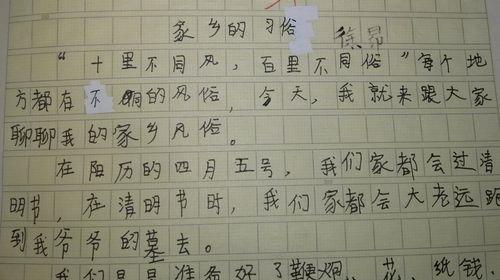 家乡的习俗
徐昂
“十里不同风,百里不同俗”每个地
方都有不同的风俗,今天,我就来跟大家
聊聊我的家乡风俗。
在阳历的四月五号,我们家都会过清
明节,在清明节时,我们家都会大老远跑
到我爷爷的墓去。
我们是准备好了鞭炮、花、纸钱